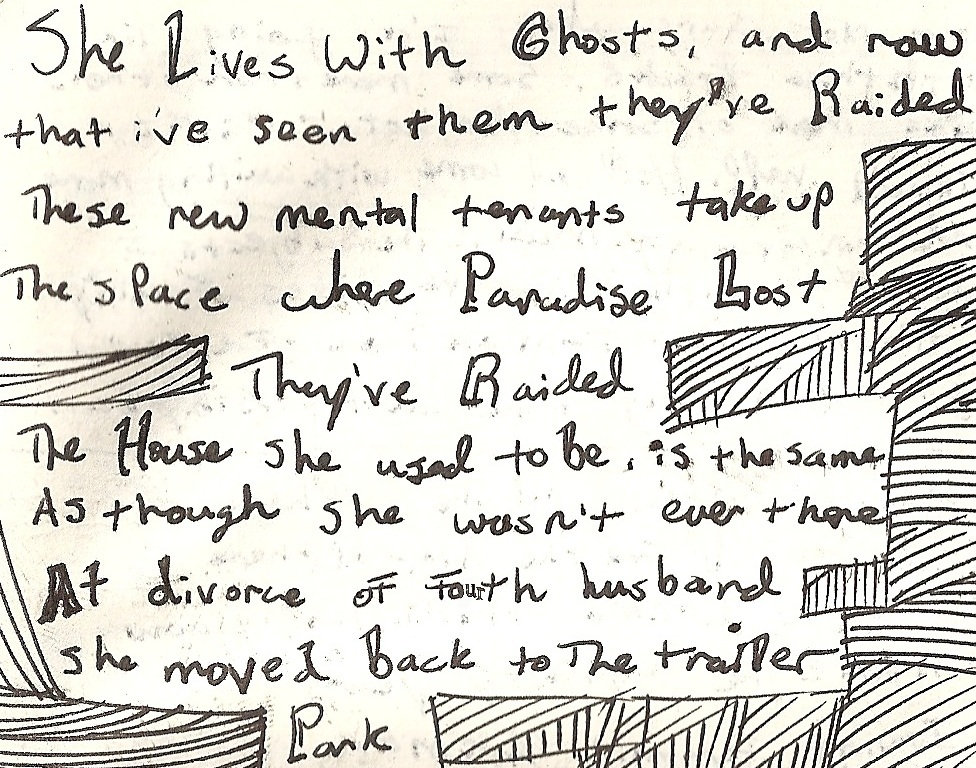 She Lives With Ghosts, and now
that i've seen them they've Raided
These new mental tenants take up
The space where Paradise Lost
They've Raided
The House she used to Be, is the same
As though she wasn't ever there
At divorce of Fourth husband
she moved Back to The trailer
Park